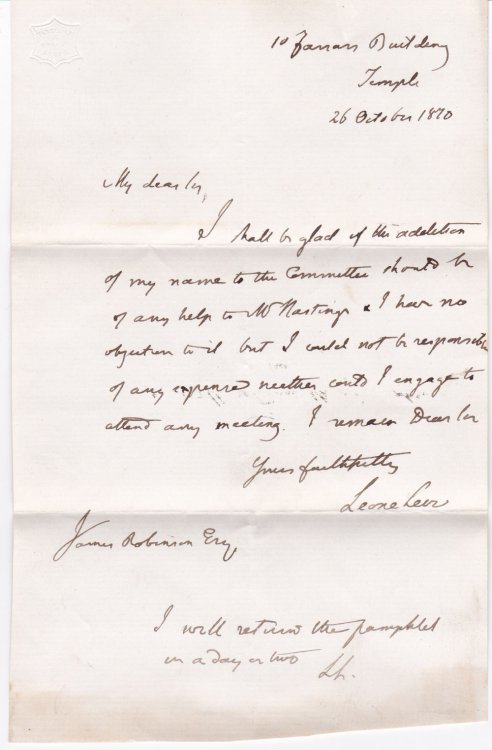 10 Farrars Building
Temple
26 October 1870
My dear Sir,
I shall be glad if the addition
of my name to the Committee should be
of any help to Mr Hastings & I have no
objection to it but I could not be responsible
of any expense neither could I engage to
attend any meeting. I remain Dear Sir
Yours faithfully
Leone Levi
James Robinson Esq,
I will return the pamphlet
in a day or two LL.